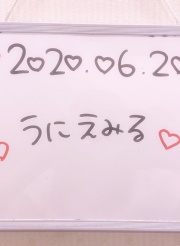 2020.06.20
うにえみる